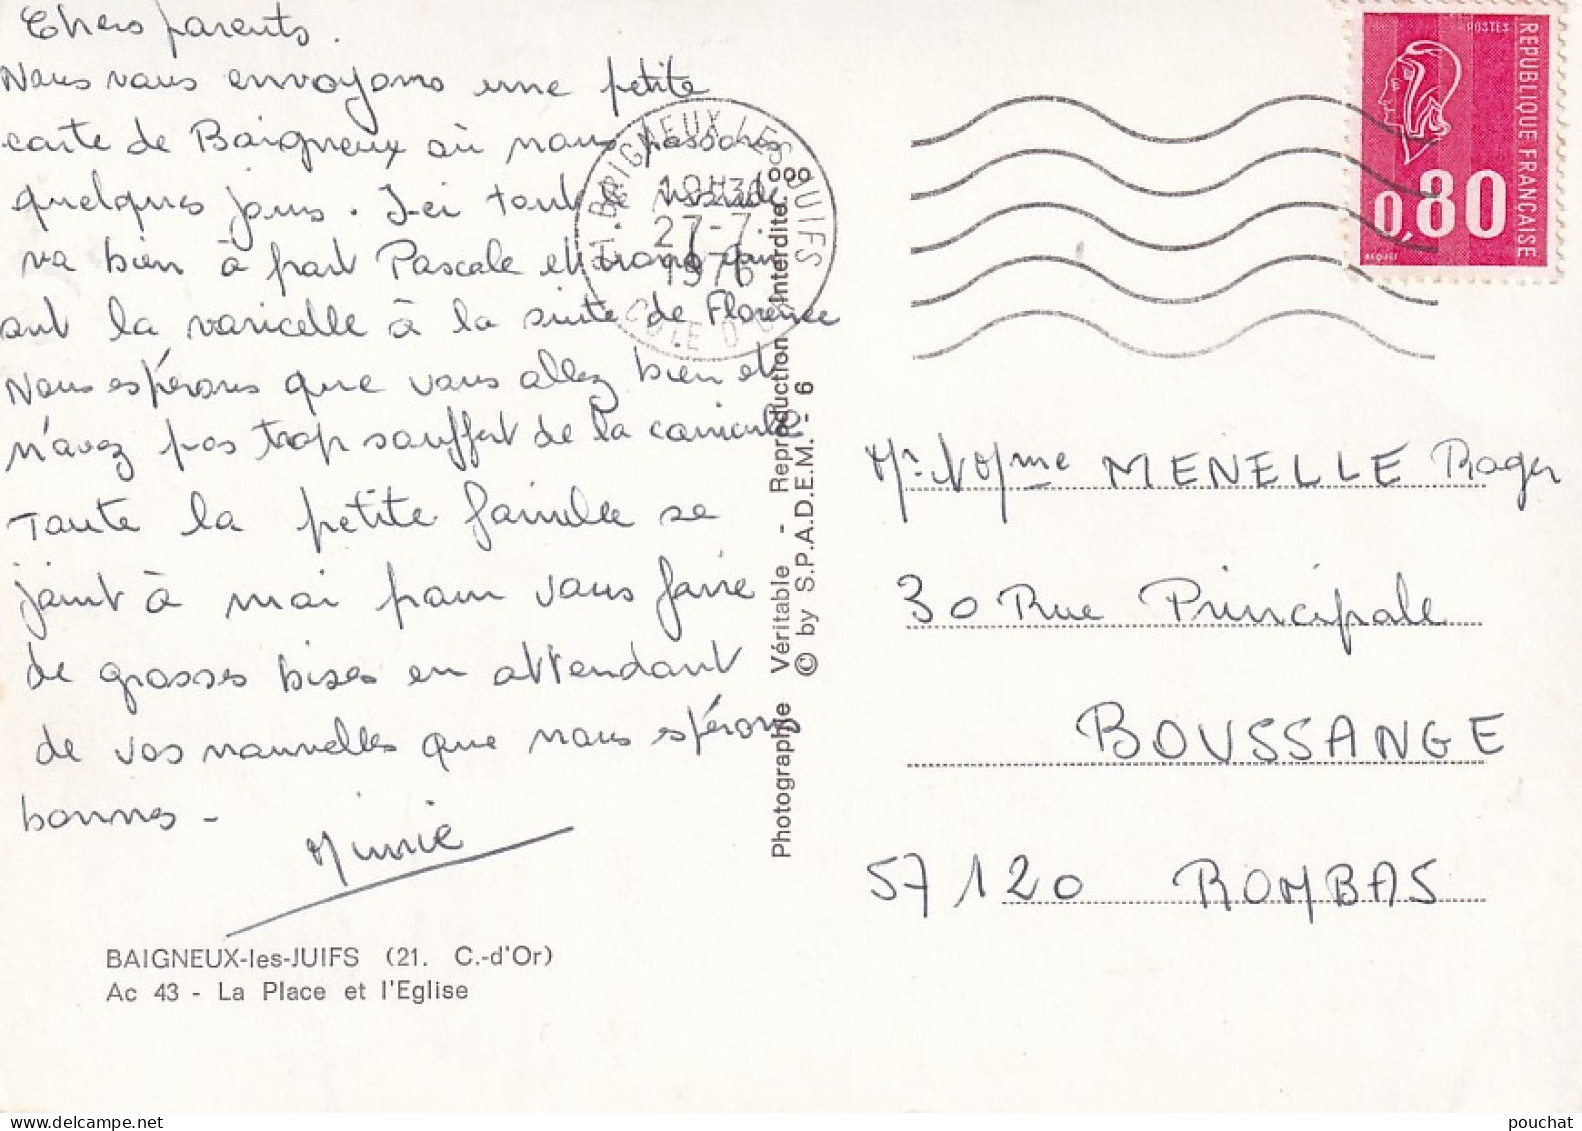 Chers parents.
Nous vous envoyons une petite
carte de Baigneux où nous passons
quelques jours. Ici tout le monde
va bien à part Pascale et qui
ont la varicelle à la suite de Florence
Nous espérons que vous allez bien et
n'avez pas trop souffert de la canicule
Toute la petite famille se
joint à moi pour vous faire
de grosses bises en attendant
de vos nouvelles que nous espérons
bonnes -
BAIGNEUX-les-JUIFS (21. C.-d'Or)
Ac 43 - La Place et l'Eglise
21. BAIGNEUX LES JUIFS
27-7
1976
COTE D'OR
Photographie Véritable - Reproduction Interdite.
© by S.P.A.D.E.M. - 6
POSTES
REPUBLIQUE FRANCAISE
0,80
BEQUET
Mr et Mme MENELLE Roger
30 Rue Principale
BOUSSANGE
57120 ROMBAS
pouchat